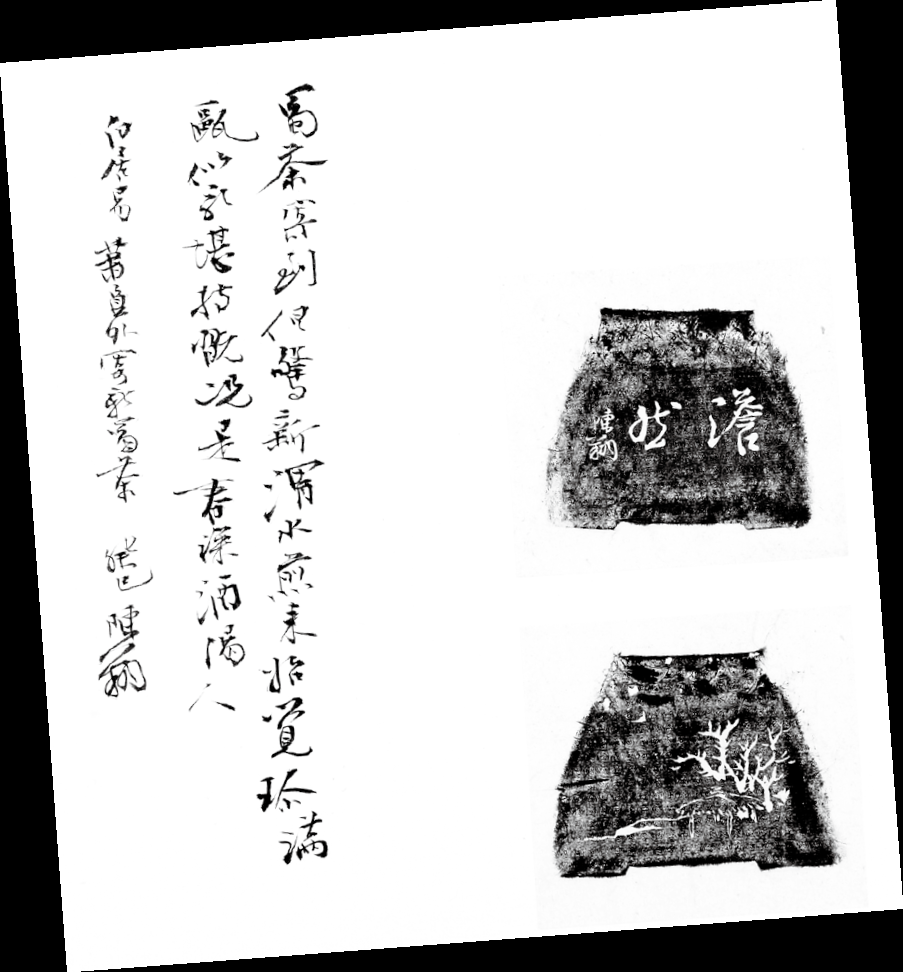 蜀茶寄到但驚新渭水煎来始覺珍滿
甌似乳堪持翫況是春深酒渴人
白居易 蕭員外寄新蜀茶 陳
澹然
陳